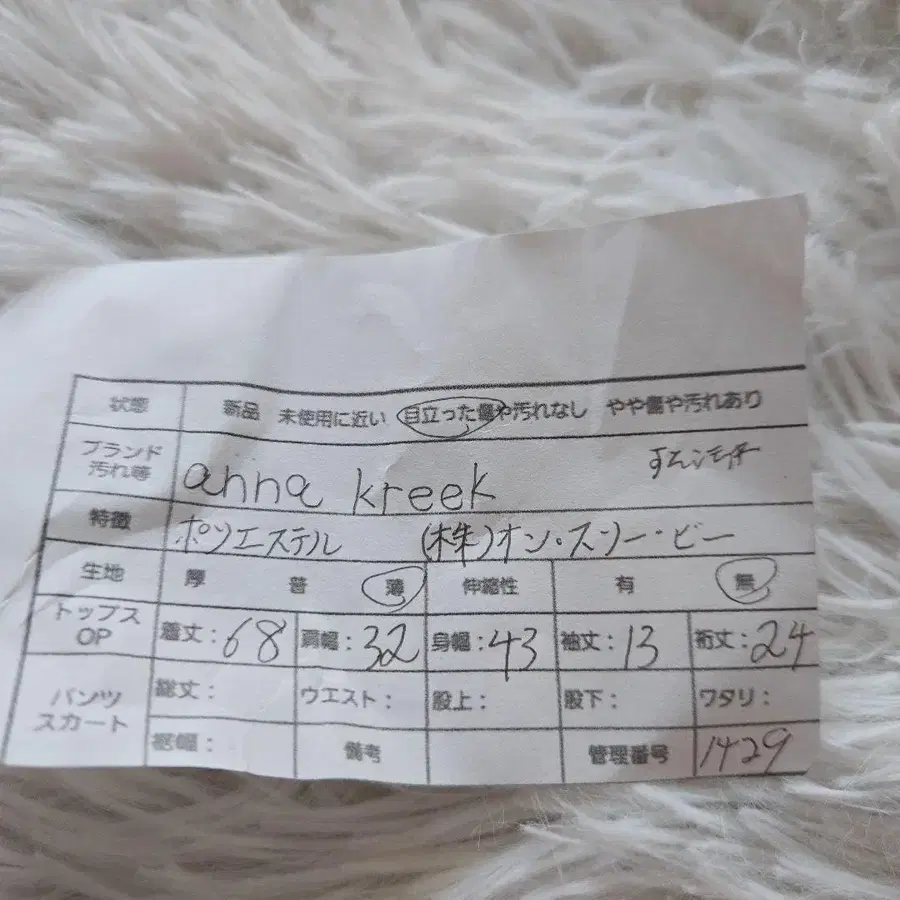 状態 新品 未使用に近い 目立った傷や汚れなし やや傷や汚れあり
ブランド
汚れ等 anna kreek
特徴 ポリエステル (株)オン・スリー・ビー
生地 厚 普 薄 伸縮性 有 無
トップス
OP 着丈:68 肩幅:32 身幅:43 袖丈:13 裄丈:24
パンツ
スカート 総丈: ウエスト: 股上: 股下: ワタリ:
裾幅: 備考 管理番号 1429